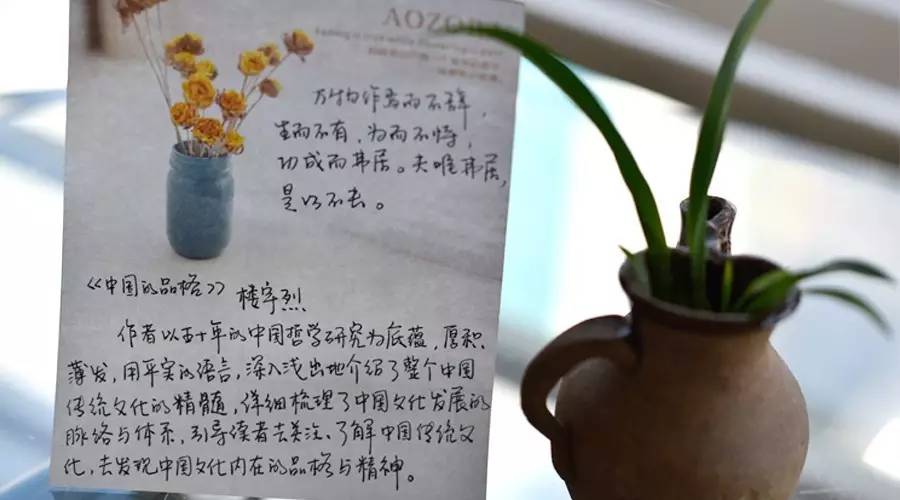 万物作焉而不辞，
生而不有，为而不恃，
功成而弗居。夫唯弗居，
是以不去。
《中国的品格》 楼宇烈
作者以五十年的中国哲学研究为底蕴，厚积
薄发，用平实的语言，深入浅出地介绍了整个中国
传统文化的精髓，详细梳理了中国文化发展的
脉络与体系，引导读者去关注、了解中国传统文
化，去发现中国文化内在的品格与精神。